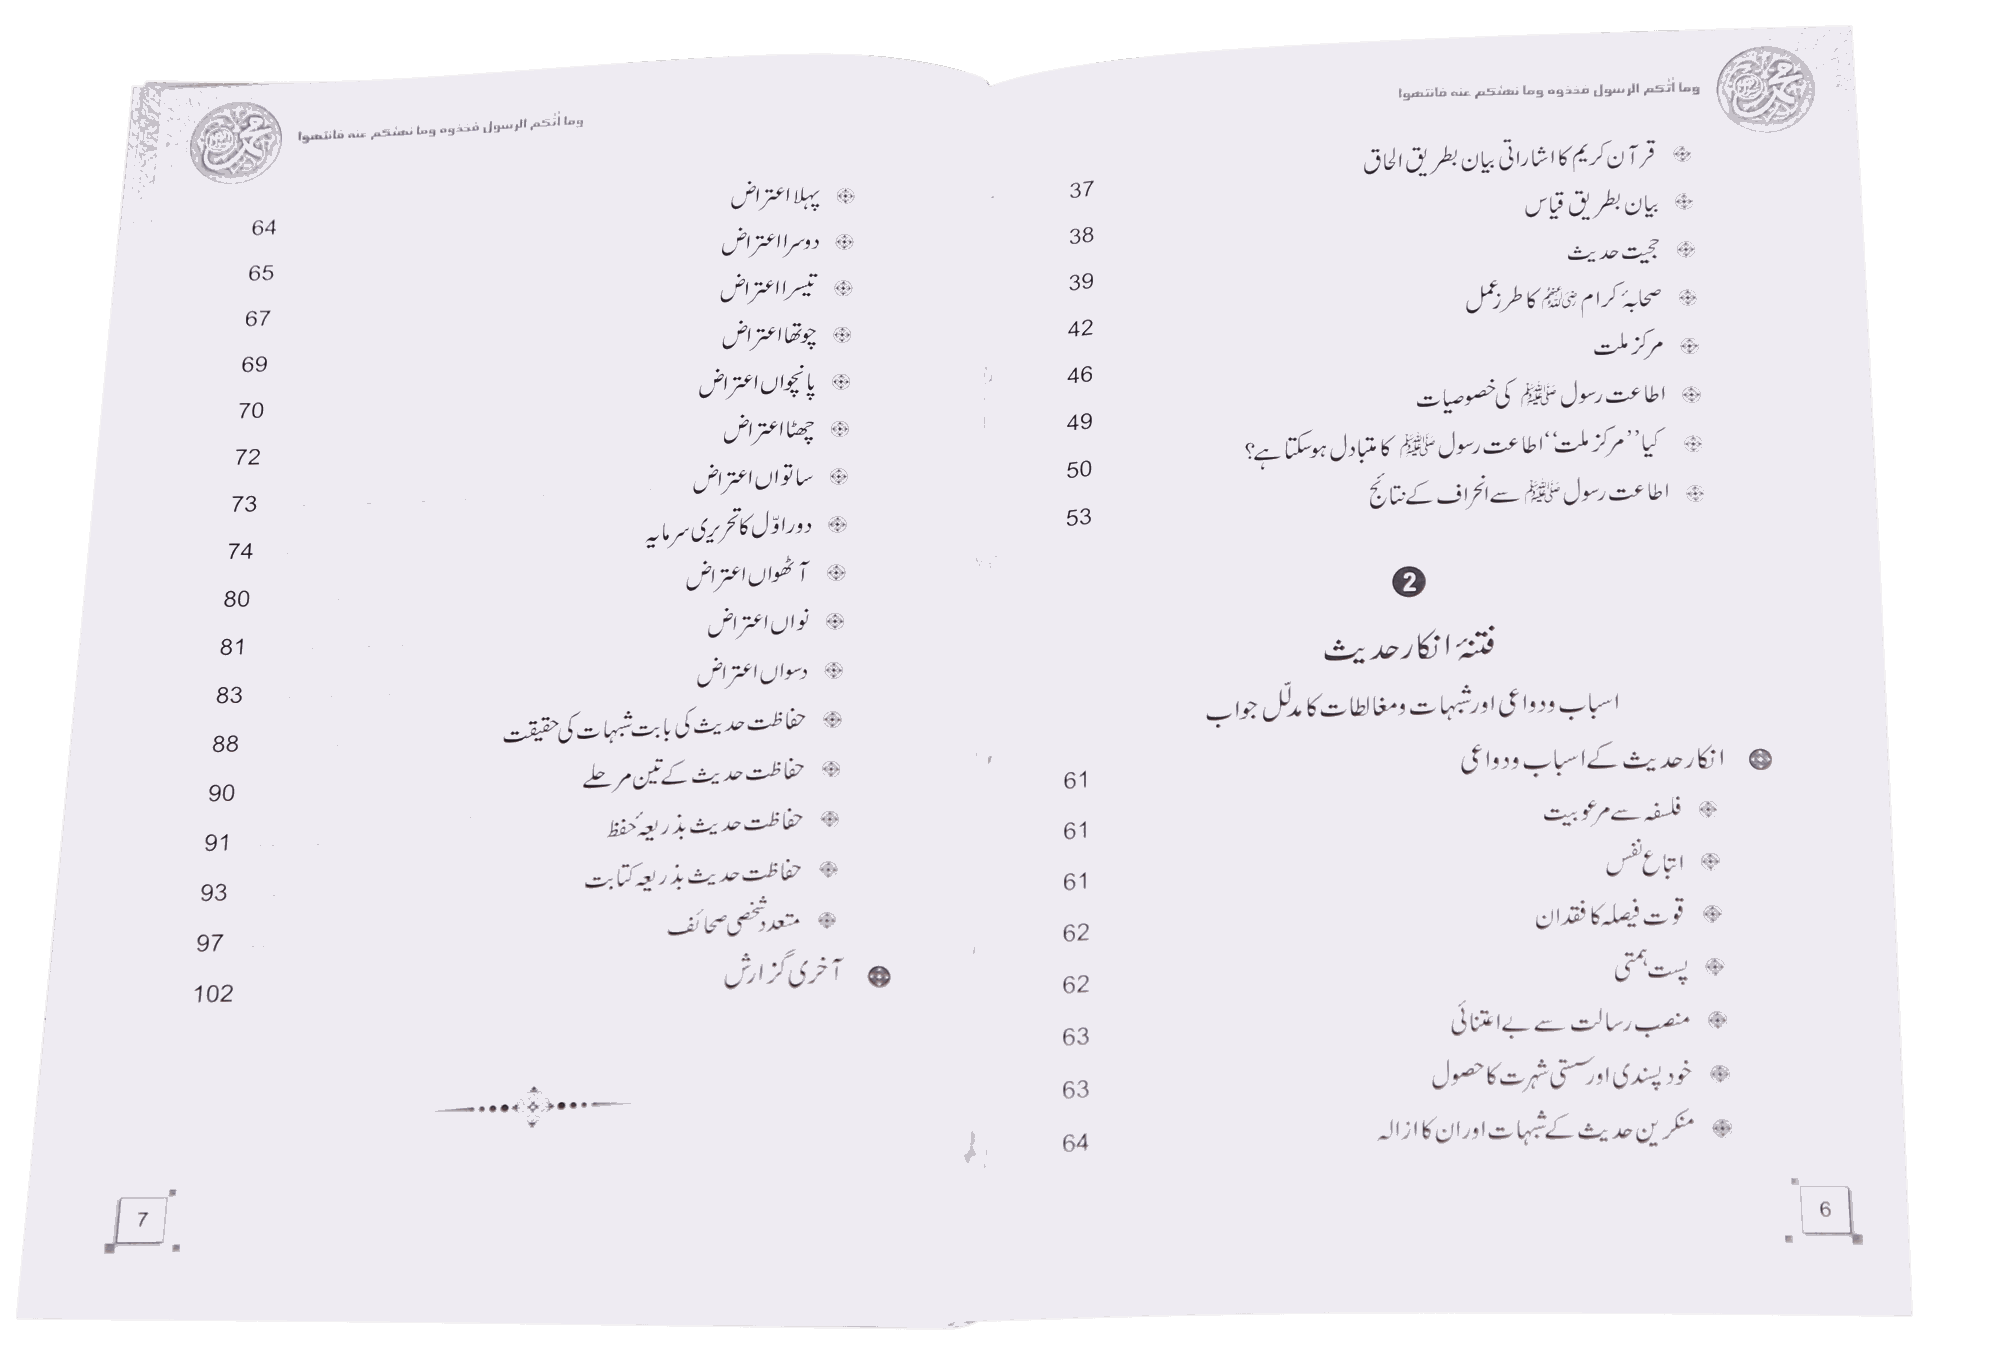 وما أتٰكم الرسول فخذوه وما نهٰىكم عنه فانتهوا
قرآن کریم کا اشاراتی بیان بطریق الحاق 37
بیان بطریق قیاس 38
حجیت حدیث 39
صحابۂ کرام رضی اللہ عنہم کا طرز عمل 42
مرکز ملت 46
اطاعت رسول ﷺ کی خصوصیات 49
کیا ’’مرکز ملت‘‘ اطاعت رسول ﷺ کا متبادل ہوسکتا ہے؟ 50
اطاعت رسول ﷺ سے انحراف کے نتائج 53
2
فتنۂ انکار حدیث
اسباب و دواعی اور شبہات و مغالطات کا مدلّل جواب
انکار حدیث کے اسباب و دواعی 61
فلسفہ سے مرعوبیت 61
اتباع نفس 61
قوت فیصلہ کا فقدان 62
پست ہمتی 62
منصب رسالت سے بے اعتنائی 63
خود پسندی اور سستی شہرت کا حصول 63
منکرین حدیث کے شبہات اور ان کا ازالہ 64
6
وما أتٰكم الرسول فخذوه وما نهٰىكم عنه فانتهوا
پہلا اعتراض 64
دوسرا اعتراض 65
تیسرا اعتراض 67
چوتھا اعتراض 69
پانچواں اعتراض 70
چھٹا اعتراض 72
ساتواں اعتراض 73
دور اوّل کا تحریری سرمایہ 74
آٹھواں اعتراض 80
نواں اعتراض 81
دسواں اعتراض 83
حفاظت حدیث کی بابت شبہات کی حقیقت 88
حفاظت حدیث کے تین مرحلے 90
حفاظت حدیث بذریعۂ حفظ 91
حفاظت حدیث بذریعہ کتابت 93
متعدد شخصی صحائف 97
آخری گزارش 102
7